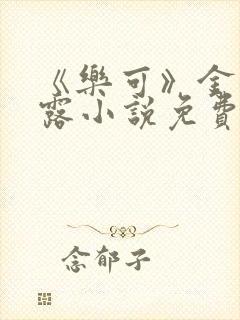 《樂可》金
露小說免費
念郁子